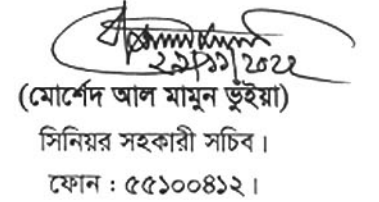 ২৯/১১/২০২২
(মোর্শেদ আল মামুন ভুইয়া)
সিনিয়র সহকারী সচিব।
ফোন : ৫৫১০০৪১২।